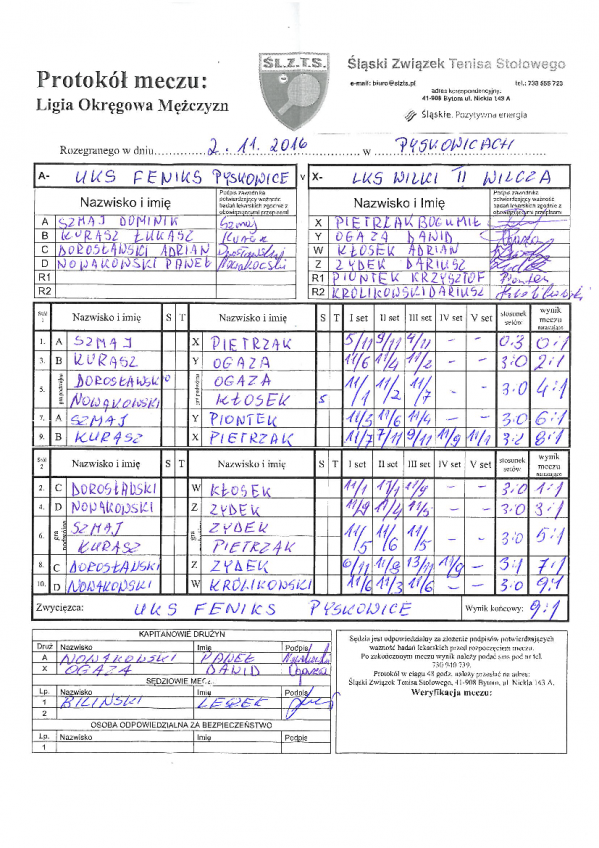 ŚL.Z.T.S.
Śląski Związek Tenisa Stołowego
e-mail: biuro@slzts.pl tel.: 738 585 723
adres korespondencyjny:
41-908 Bytom ul. Nickla 143 A
Śląskie. Pozytywna energia
Protokół meczu:
Ligia Okręgowa Mężczyzn
Rozegranego w dniu 2.11.2016 w PYSKOWICACH
A- UKS FENIKS PYSKOWICE v X- LKS WILKI II WILCZA
Nazwisko i imię Podpis zawodnika potwierdzający ważność badań lekarskich zgodnie z obowiązującymi przepisami Nazwisko i imię Podpis zawodnika potwierdzający ważność badań lekarskich zgodnie z obowiązującymi przepisami
A SZMAJ DOMINIK Szmaj X PIETRZAK BOGUMIŁ
B KURASZ ŁUKASZ Kurasz Y OGAZA DAWID
C DOROSŁAWSKI ADRIAN W KŁOSEK ADRIAN
D NOWAKOWSKI PAWEŁ Z ZYDEK DARIUSZ
R1 R1 PIONTEK KRZYSZTOF Piontek
R2 R2 KRÓLIKOWSKI DARIUSZ
Stół 1 Nazwisko i imię S T Nazwisko i imię S T I set II set III set IV set V set stosunek setów wynik meczu narastająco
1. A SZMAJ X PIETRZAK 5/11 9/11 4/11 - - 0:3 0:1
3. B KURASZ Y OGAZA 11/6 11/4 11/2 - - 3:0 2:1
5. gra podwójna DOROSŁAWSKI OGAZA 11/1 11/2 11/7 - - 3:0 4:1
NOWAKOWSKI KŁOSEK S
7. A SZMAJ Y PIONTEK 11/5 11/6 11/4 - - 3:0 6:1
9. B KURASZ X PIETRZAK 11/7 7/11 9/11 11/9 11/7 3:2 8:1
Stół 2 Nazwisko i imię S T Nazwisko i imię S T I set II set III set IV set V set stosunek setów wynik meczu narastająco
2. C DOROSŁAWSKI W KŁOSEK 11/1 11/9 - - 3:0 1:1
4. D NOWAKOWSKI Z ZYDEK 11/9 11/4 11/5 - - 3:0 3:1
6. gra podwójna SZMAJ ZYDEK 11/5 11/6 11/5 - - 3:0 5:1
KURASZ PIETRZAK
8. C DOROSŁAWSKI Z ZYDEK 6/11 11/8 13/11 11/9 - 3:1 7:1
10. D NOWAKOWSKI W KRÓLIKOWSKI 11/6 11/3 11/6 - - 3:0 9:1
Zwycięzca: UKS FENIKS PYSKOWICE Wynik końcowy: 9:1
KAPITANOWIE DRUŻYN
Druż Nazwisko Imię Podpis
A NOWAKOWSKI PAWEŁ
X OGAZA DAWID Ogaza
SĘDZIOWIE MECZU
Lp. Nazwisko Imię Podpis
1 BILIŃSKI LESZEK
2
OSOBA ODPOWIEDZIALNA ZA BEZPIECZEŃSTWO
Lp. Nazwisko Imię Podpis
1
Sędzia jest odpowiedzialny za złożenie podpisów potwierdzających
ważność badań lekarskich przed rozpoczęciem meczu.
Po zakończonym meczu wynik należy podać sms pod nr tel.
730 940 739.
Protokół w ciągu 48 godz. należy przesłać na adres:
Śląski Związek Tenisa Stołowego, 41-908 Bytom, ul. Nickla 143 A.
Weryfikacja meczu: